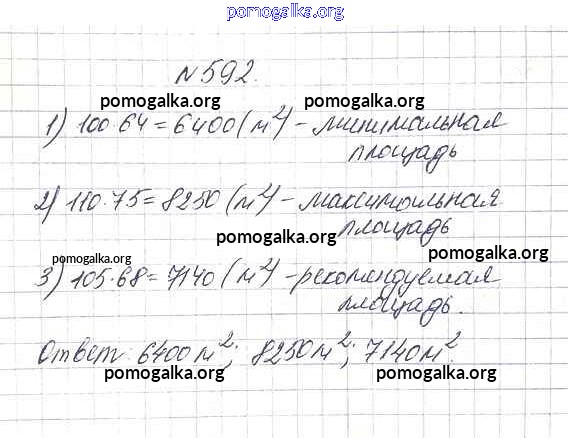 pomogalka.org
№592.
pomogalka.org pomogalka.org
1) 100·64=6400(м²) – минимальная
площадь
2) 110·75=8250(м²) – максимальная
площадь
pomogalka.org
pomogalka.org
pomogalka.org
3) 105·68=7140(м²) – рекомендуемая
площадь.
Ответ: 6400м²; 8250м²; 7140м².
pomogalka.org pomogalka.org